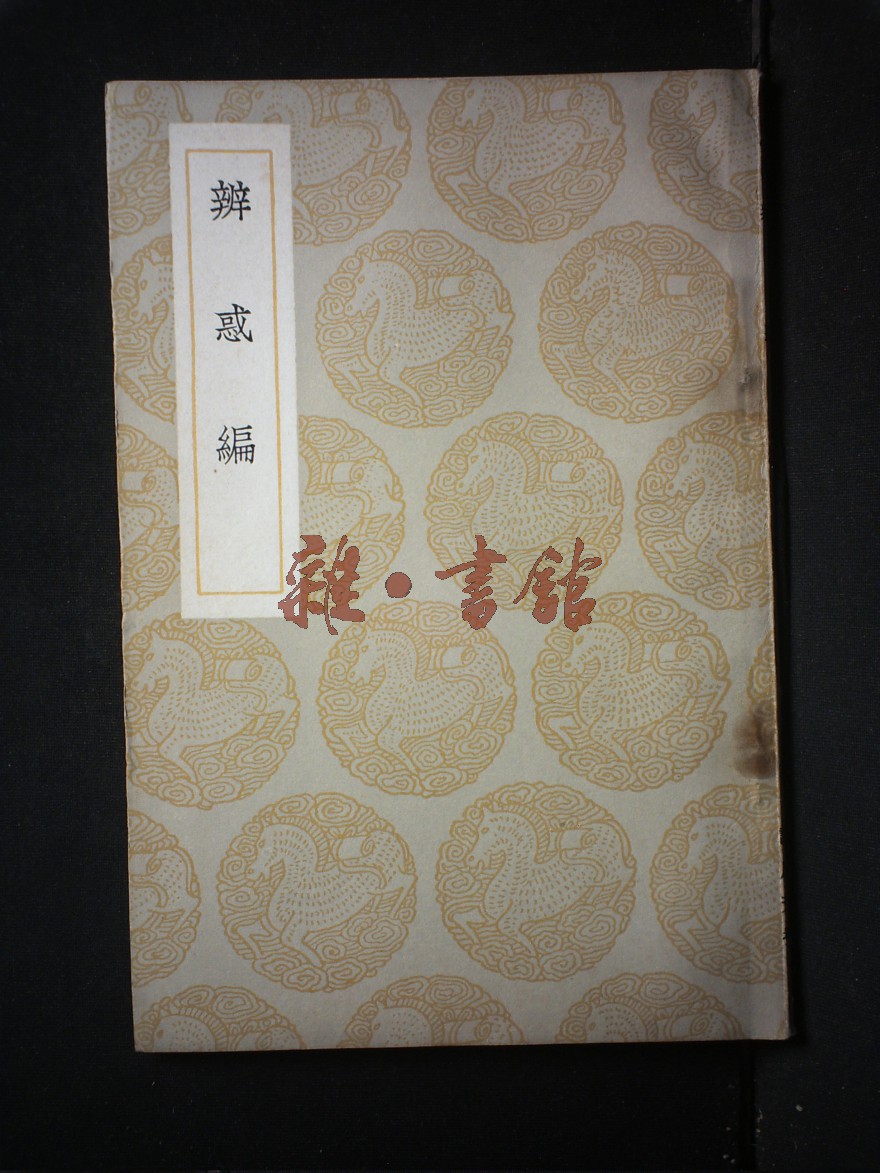 辨惑編
雜·書館